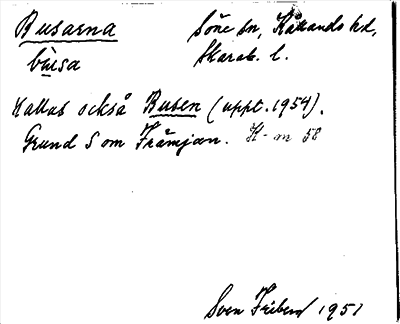 Busarna Söne sn, Kållands hd,
bu̇sa Skarab. l.
Kallas också Busen (uppt. 1954).
Grund S om Främjan. K-m 58
Sven Friberg 1951